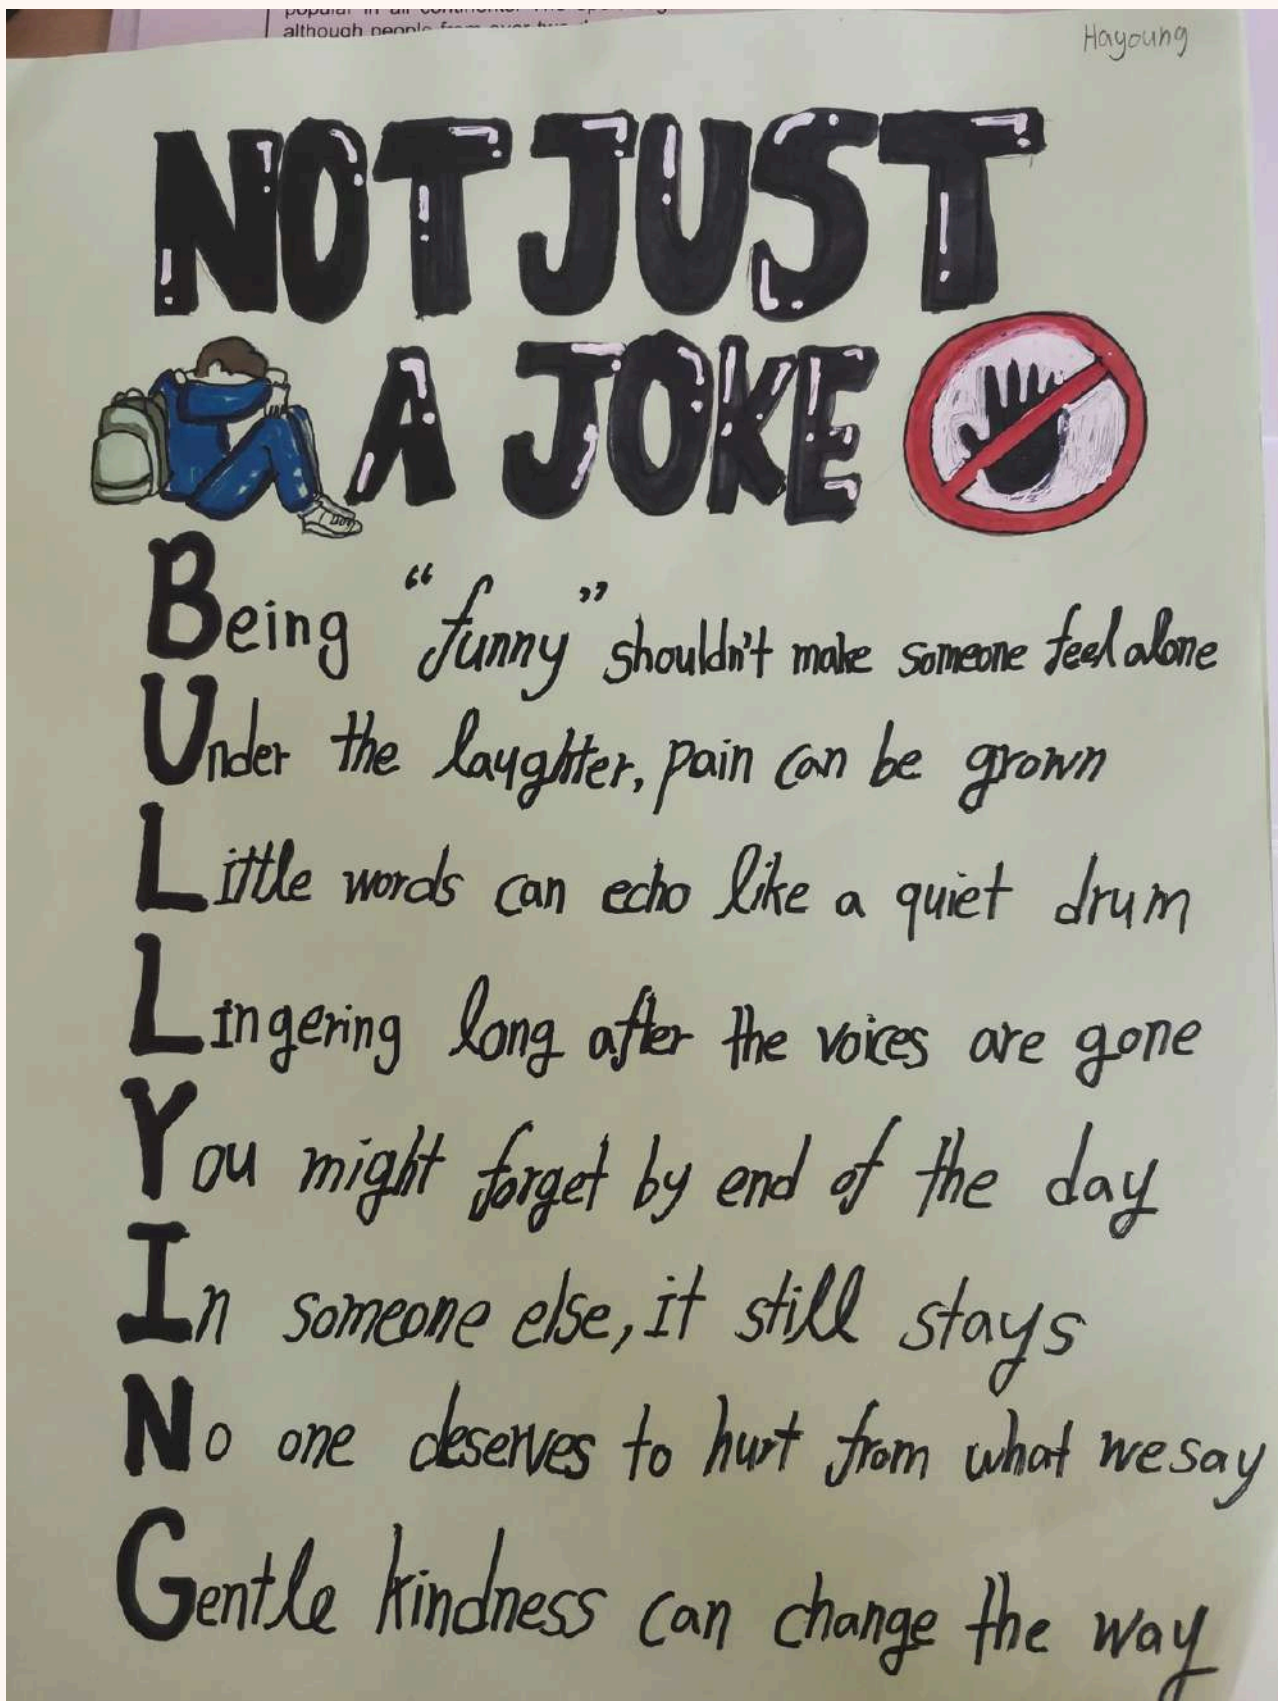 popular in all continents. The
although people from over two
Hayoung
NOT JUST
A JOKE
Being "funny" shouldn't make someone feel alone
Under the laughter, pain can be grown
Little words can echo like a quiet drum
Lingering long after the voices are gone
You might forget by end of the day
In someone else, it still stays
No one deserves to hurt from what we say
Gentle kindness can change the way